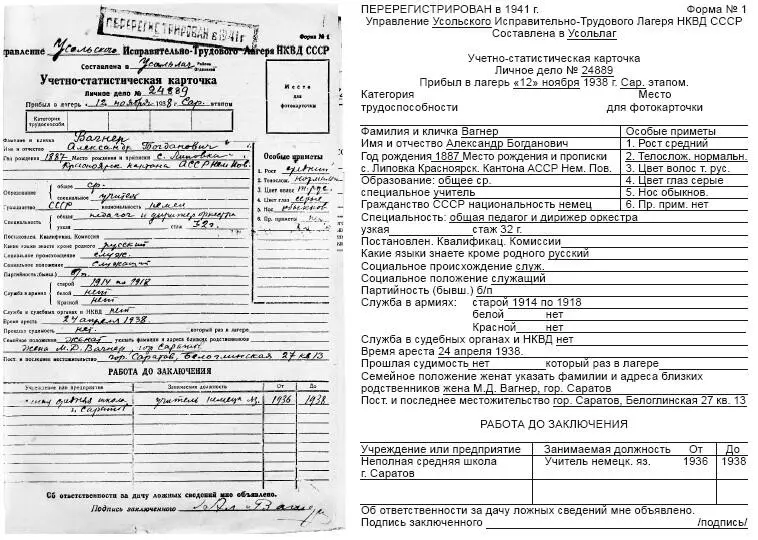 ПЕРЕРЕГИСТРИРОВАН в 1941 г
Форма № 1
правление Усольского Исправительно-Трудового Лагеря НКВД СССР
Составлена в Усольлаг
Учетно-статистическая карточка
Личное дело № 24889
Прибыл в лагерь „12" ноября 1938 г Сар. этапом
Категория трудоспособн.
Место для фотокарточки
Фамилия и кличка Вагнер
Имя и отчество Александр Богданович
Год рождения 1887 Место рождения и прописки с. Липовка
Красноярск кантона АССР Нем Пов.
Образование: общее ср.
специальное учитель
Гражданство СССР национальность немец
Специальность: общая педагог и дирижер оркестра
узкая стаж 32 г.
Постановлен. Квалификац. Комиссии
Какие языки знаете кроме родного русский
Социальное происхождение служ.
Социальное положение служащий
Партийность (бывш.) б/п
Служба в армиях: старой 1914 по 1918
белой нет
Красной нет
Служба в судебных органах и НКВД нет
Время ареста 24 апреля 1938.
Прошлая судимость нет. который раз в лагере
Семейное положение женат указать фамилии и адреса близких родственников
жена М.Д. Вагнер, гор Саратов
Пост. и последнее местожительство гор. Саратов, Белоглинская 27 кв 13
Особые приметы
1. Рост средний
2. Телослож. нормальн
3. Цвет волос т. рус.
4. Цвет глаз серые
5. Нос обыкнов
6. Пр. приметы нет
РАБОТА ДО ЗАКЛЮЧЕНИЯ
Учреждение или предприятие Занимаемая должность От До
средняя школа учитель немецк яз. 1936 1938
г. Саратов
Об ответственности за дачу ложных сведений мне объявлено.
Подпись заключенного Вагнер
ПЕРЕРЕГИСТРИРОВАН в 1941 г. Форма № 1
Управление Усольского Исправительно-Трудового Лагеря НКВД СССР
Составлена в Усольлаг
Учетно-статистическая карточка
Личное дело № 24889
Прибыл в лагерь «12» ноября 1938 г. Сар. этапом.
Категория Место
трудоспособности для фотокарточки
Фамилия и кличка Вагнер Особые приметы
Имя и отчество Александр Богданович 1. Рост средний
Год рождения 1887 Место рождения и прописки 2. Телослож. нормальн.
с. Липовка Красноярск. Кантона АССР Нем. Пов. 3. Цвет волос т. рус.
Образование: общее ср. 4. Цвет глаз серые
специальное учитель 5. Нос обыкнов.
Гражданство СССР национальность немец 6. Пр. прим. нет
Специальность: общая педагог и дирижер оркестра
узкая стаж 32 г.
Постановлен. Квалификац. Комиссии
Какие языки знаете кроме родного русский
Социальное происхождение служ.
Социальное положение служащий
Партийность (бывш.) б/п
Служба в армиях: старой 1914 по 1918
белой нет
Красной нет
Служба в судебных органах и НКВД нет
Время ареста 24 апреля 1938.
Прошлая судимость нет который раз в лагере
Семейное положение женат указать фамилии и адреса близких
родственников жена М.Д. Вагнер, гор. Саратов
Пост. и последнее местожительство гор. Саратов, Белоглинская 27 кв. 13
РАБОТА ДО ЗАКЛЮЧЕНИЯ
Учреждение или предприятие Занимаемая должность От До
Неполная средняя школа Учитель немецк. яз. 1936 1938
г. Саратов
Об ответственности за дачу ложных сведений мне объявлено.
Подпись заключенного /подпись/